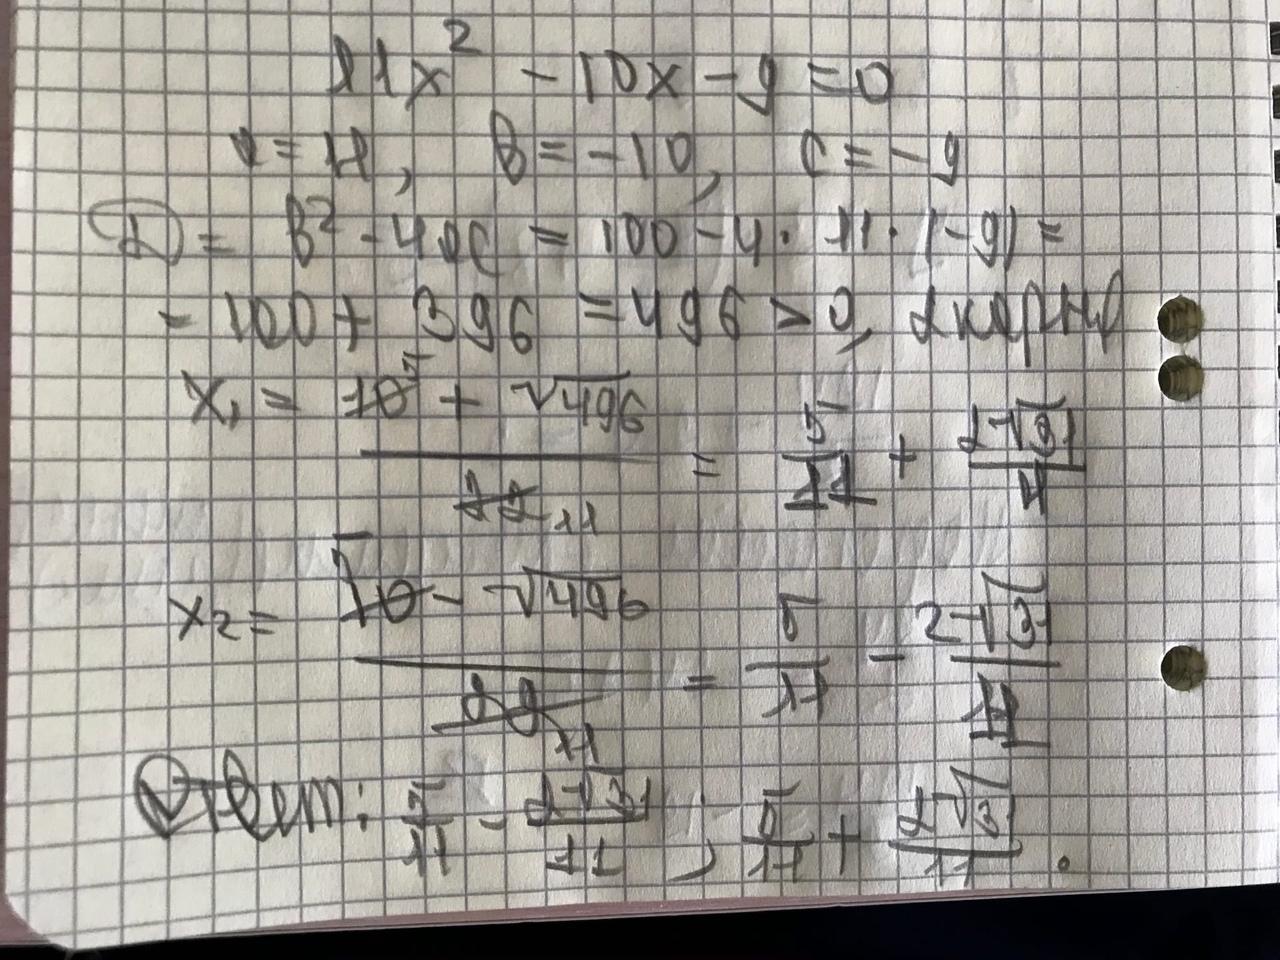 11x² - 10x - 9 = 0
a = 11, b = -10, c = -9
D = b² - 4ac = 100 - 4 · 11 · (-9) =
= 100 + 396 = 496 > 0, 2 корня
x₁ = (10 5 + √496) / (22 11) = 5/11 + 2√31/11
x₂ = (10 5 - √496) / (22 11) = 5/11 - 2√31/11
Ответ: 5/11 - 2√31/11 ; 5/11 + 2√31/11.